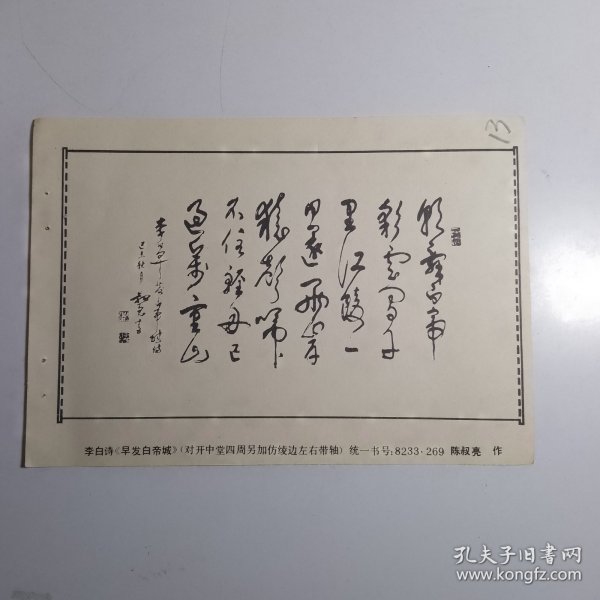 13
朝辭白帝
彩雲間千
里江陵一
日還兩岸
猿聲啼
不住輕舟已
過萬重山
李白早發白帝城詩
叔亮書
李白诗《早发白帝城》(对开中堂四周另加仿绫边左右带轴) 统一书号:8233·269 陈叔亮 作
孔夫子旧书网
www.kongfz.com